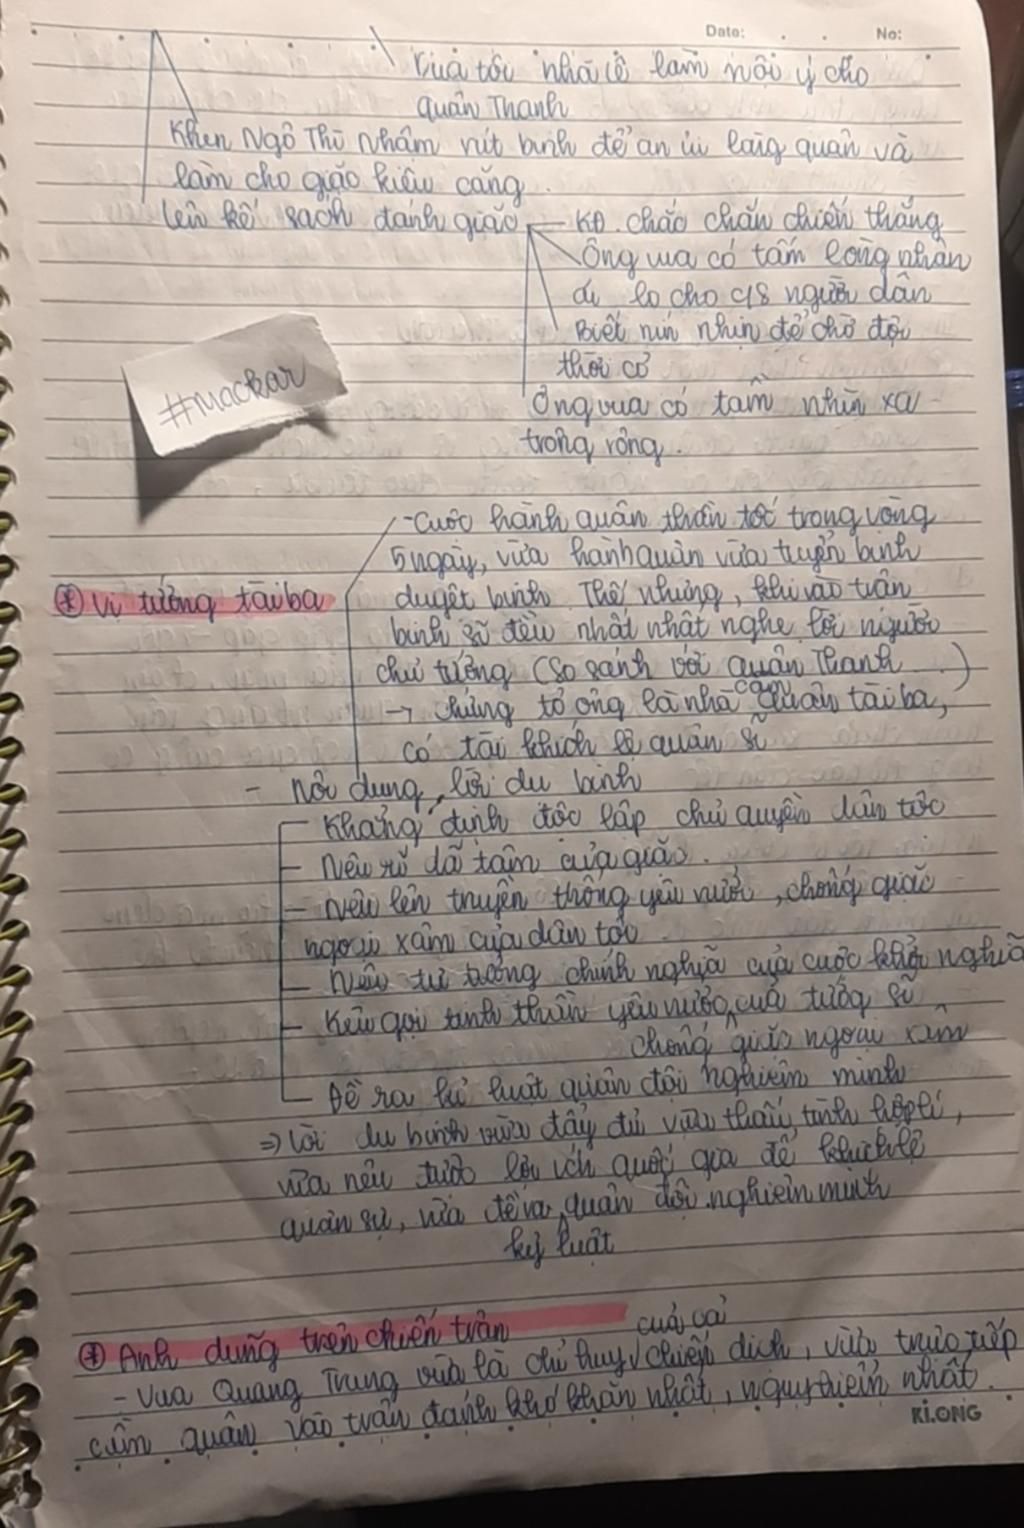 Date: No:
vua tôi nhà Lê làm nội ý cho
quân Thanh
Khen Ngô Thì Nhậm rút binh để an ủi lòng quân và
làm cho giặc kiêu căng.
Lên kế sách đánh giặc
KĐ. chắc chắn chiến thắng
Ông vua có tấm lòng nhân
ái lo cho c/s người dân
Biết nín nhịn để chờ đợi
thời cơ
Ông vua có tầm nhìn xa
trông rộng.
#mackar
* Vị tướng tài ba
- Cuộc hành quân thần tốc trong vòng
5 ngày, vừa hành quân vừa tuyển binh
duyệt binh. Thế nhưng, khi vào trận
binh sĩ đều nhất nhất nghe lời người
chủ tướng (so sánh với quân Thanh ...)
→ chứng tỏ ông là nhà cầm quân tài ba,
có tài khích lệ quân sĩ
- Nội dung lời dụ binh
- Khẳng định độc lập chủ quyền dân tộc
- Nêu rõ dã tâm của giặc.
- Nêu lên truyền thống yêu nước, chống giặc
ngoại xâm của dân tộc
- Nêu tư tưởng chính nghĩa của cuộc khởi nghĩa
- Kêu gọi tinh thần yêu nước của tướng sĩ
chống giặc ngoại xâm
- Đề ra kỉ luật quân đội nghiêm minh
=> Lời dụ binh vừa đầy đủ vừa thấu tình hợp lí,
vừa nêu được lợi ích quốc gia để khích lệ
quân sự, vừa đề ra quân đội nghiêm minh
kỷ luật
* Anh dũng trên chiến trận
- Vua Quang Trung vừa là chỉ huy của cả chiến dịch, vừa trực tiếp
cầm quân vào trận đánh khó khăn nhất, nguy hiểm nhất.
KLONG